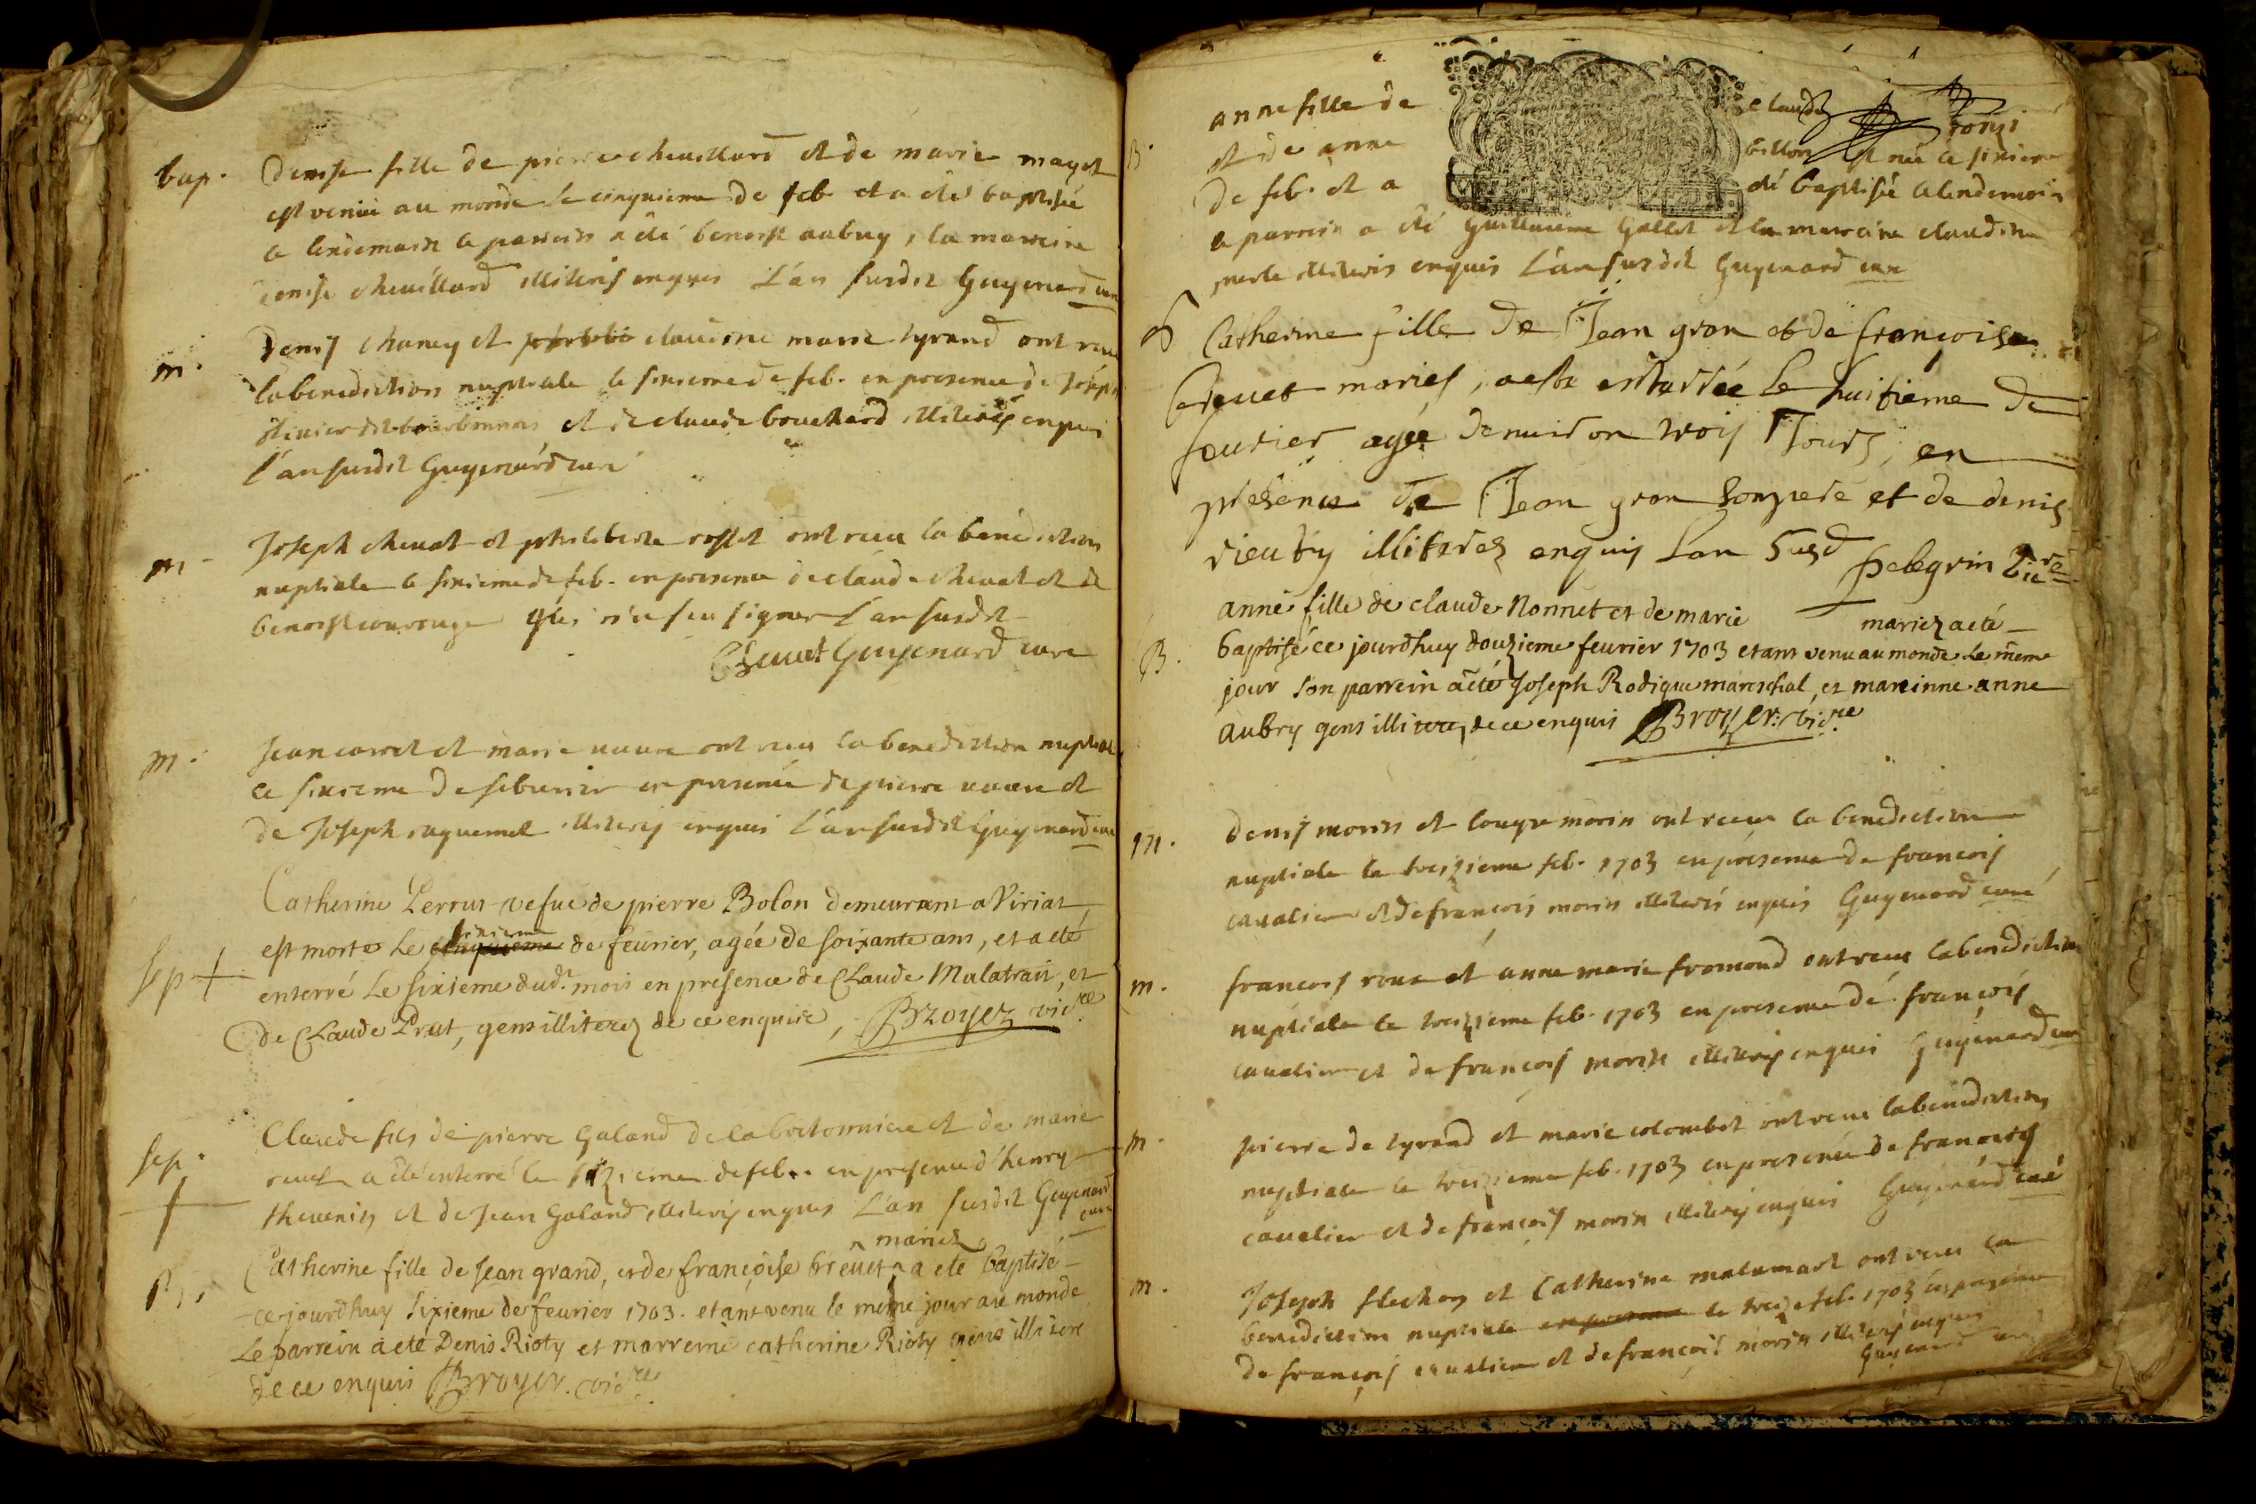 bap. Denise fille de pierre cheuillard et de marie mayet
est venue au monde le cinquieme de feb. et a été baptisée
le lendemain le parrein a été benoist aubry, la marreine
denise cheuillard illiterés enquis L'an susdit Guyenard curé
m. Denis chaney et claudine marie tyrand ont receu
la benediction nuptiale le sixieme de feb. en presence de Joseph
et de claude bouchard illiterés enquis
l'an susdit Guyenard curé
m. Joseph cheuat et philiberte rosset ont receu la benediction
nuptiale le sixieme de feb. en presence de claude cheuat et de
benoist qui n'a sceu signer l'an susdit
Guyenard curé
m. Jean carret et marie ont receu la benediction nuptiale
le sixieme de feburier en presence de pierre et
de Joseph illiterés enquis l'an susdit Guyenard curé
Catherine Perrut vefue de pierre Bolon demeurant a Viriat
est morte Le sixieme de feurier, agée de soixante ans, et a eté
sep + enterré Le sixieme dud.t mois en presence de Claude Malatrait, et
de Claude Prut, gens illiterez de ce enquis, Broyer vic.re
sep. Claude fils de pierre Galand de la bretonniere et de marie
a été enterré le sixieme de feb. en presence d'henry
+ theuenin et de Jean Galand illiterés enquis L'an susdit Guyenard
curé
mariez
B. Catherine fille de Jean grand, et de françoise breuet a eté baptisé
ce jourdhuy sixieme de feurier 1703. etant venu le meme jour au monde
Le parrein a eté Denis Rioty et marreine catherine Rioty gens illitere
de ce enquis Broyer. vic.re
anne fille de claude
B. et de anne billon est née le sixieme
de feb. et a été baptisée le lendemain
le parrein a été Guillaume Gallet et la marreine claudine
merle illiterés enquis L'an susdit Guyenard curé
S Catherine fille de Jean gran et de françoise
mariés, a esté enterrée le huitième de
feurier agée denuiron trois Jours, en
présence de Jean gran son pere et de denis
rieuty illiterés enquis L'an Susd. pelegrin vic.re
anne fille de claude Nonnet et de marie mariez a eté
B. baptisé ce jourdhuy douzieme feurier 1703 etant venu au monde Le meme
jour Son parrein a eté Joseph Rodigue mareschal, et mareinne anne
aubry gens illiterez de ce enquis Broyer. vic.re
m. denis morin et louyse morin ont receu la benediction
nuptiale le treizieme feb. 1703 en presence de francois
caualier et de francois morin illiterés enquis Guyenard curé
m. francois roux et anne marie fromond ont receu la benediction
nuptiale le treizieme feb. 1703 en presence de françois
caualier et de francois morin illiterés enquis Guyenard curé
m. pierre de tyrand et marie colombet ont receu la benediction
nuptiale le treizieme feb. 1703 en presence de francois
caualier et de françois morin illiterés enquis Guyenard curé
m. Joseph flechon et Catherine malamart ont receu la
benediction nuptiale le treize feb. 1703 en presence
de françois caualier et de francois morin illiterés enquis
Guyenard curé